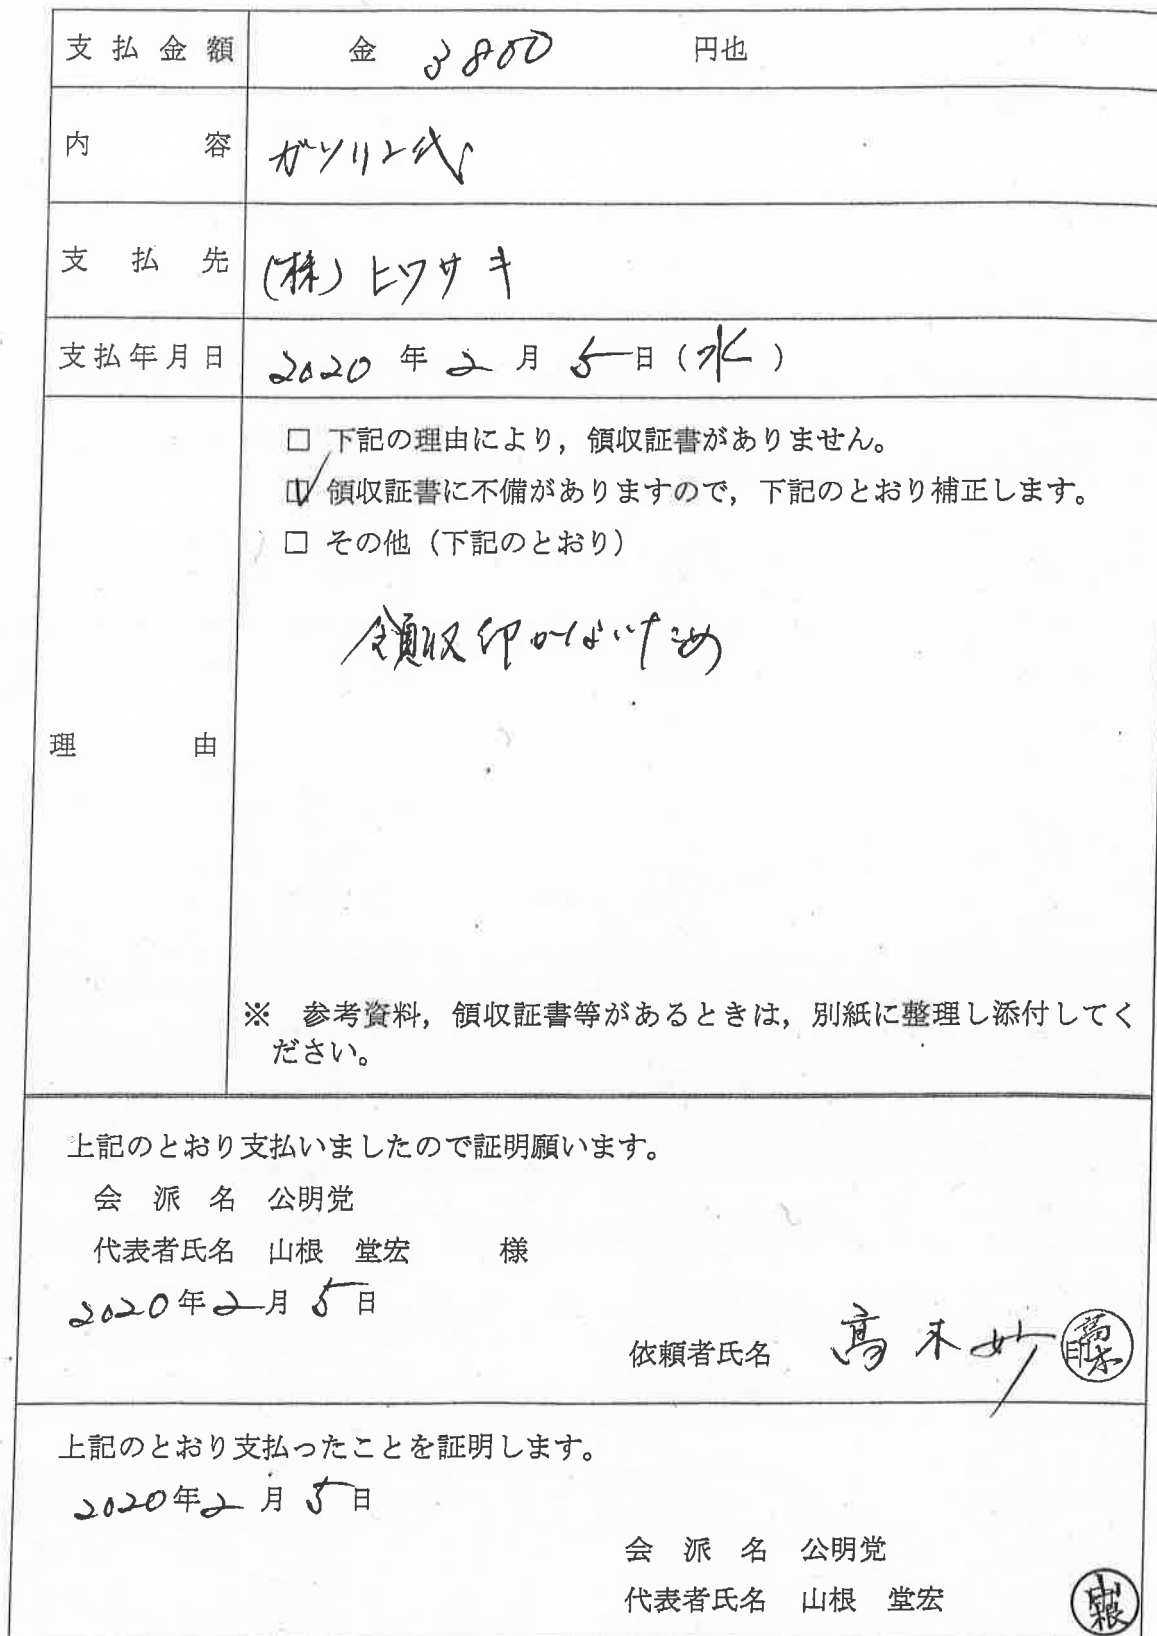 支払金額 金 3800 円也
内容 ガソリン代
支払先 (株)ヒワサキ
支払年月日 2020 年 2 月 5 日 (水)
□ 下記の理由により，領収証書がありません。
☑ 領収証書に不備がありますので，下記のとおり補正します。
□ その他（下記のとおり）
領収印がないため
理由
※ 参考資料，領収証書等があるときは，別紙に整理し添付してく
ださい。
上記のとおり支払いましたので証明願います。
会派名 公明党
代表者氏名 山根 堂宏 様
2020年2月5日
依頼者氏名 高木妙 印 高木
上記のとおり支払ったことを証明します。
2020年2月5日
会派名 公明党
代表者氏名 山根 堂宏 印 山根